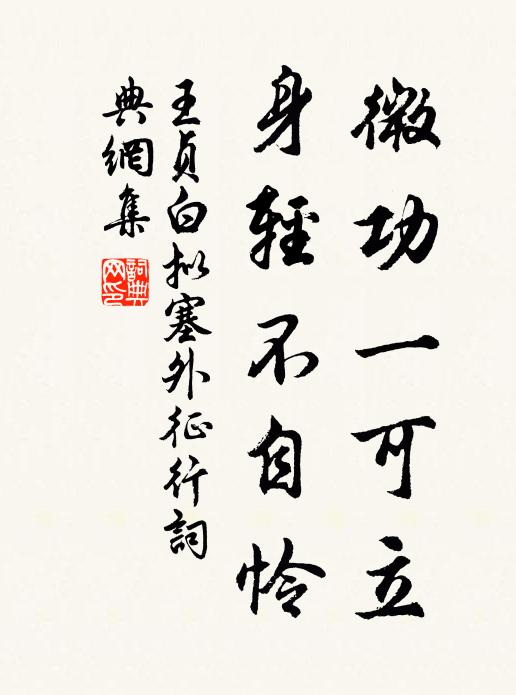 微功一可立
身輕不自怜
王貞白拟塞外征行詞
典網集
詞典网印